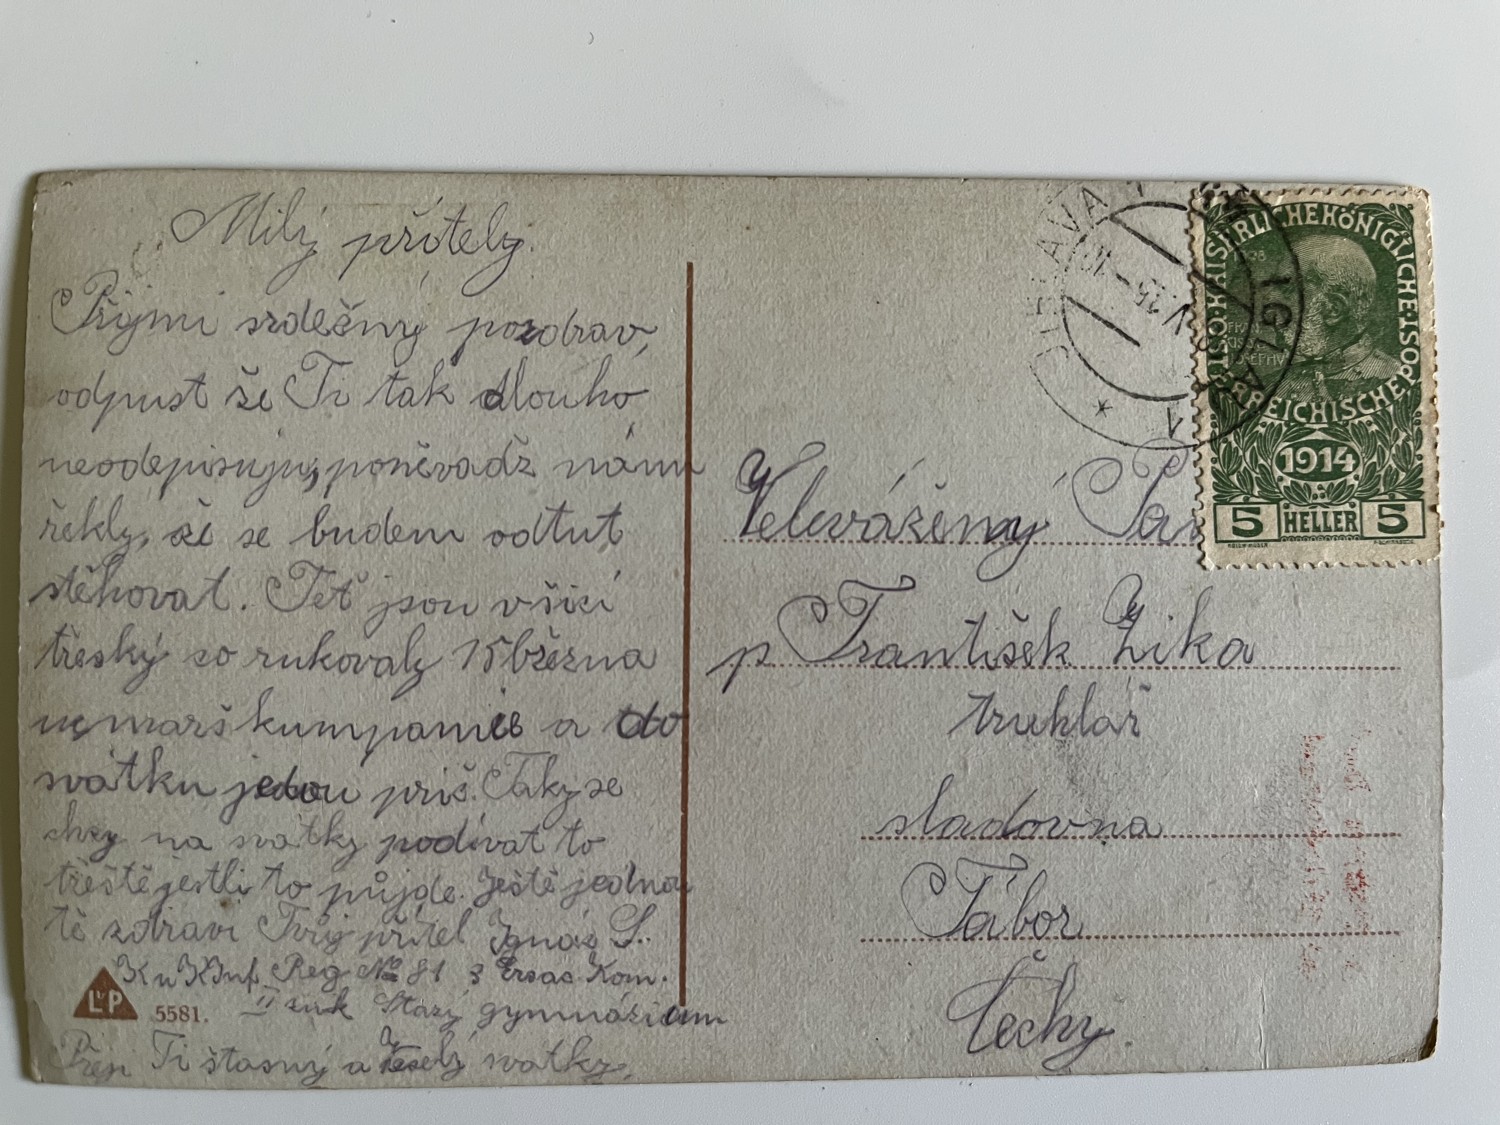 Milý příteli.
Příjmi srdečný pozdrav,
odpust že Ti tak dlouho
neodepisuju, poněvadž nám
řekly, že se budem odtut
stěhovat. Teť jsou všici
třeský so rukovaly 15 března
marškumpanie a do
svátku jedou prič. Taky se
chcy na svátky podívat to
třeště jestli to půjde. Ještě jednou
tě zdravi Tvůj přítel Ignác S.
K u K Inf. Reg № 81 3 Ersac Kom.
II zuk Starý gymnázium
Přeji Ti štasný a veselý svatky.
L&P
5581.
IGLAVA
JIHLAVA
1
KAISERLICHE KÖNIGLICHE
ÖSTERREICHISCHE POST
1914
5 HELLER 5
Velevážený Pan
p František Zika
truhlář
sladovna
Tábor
Čechy